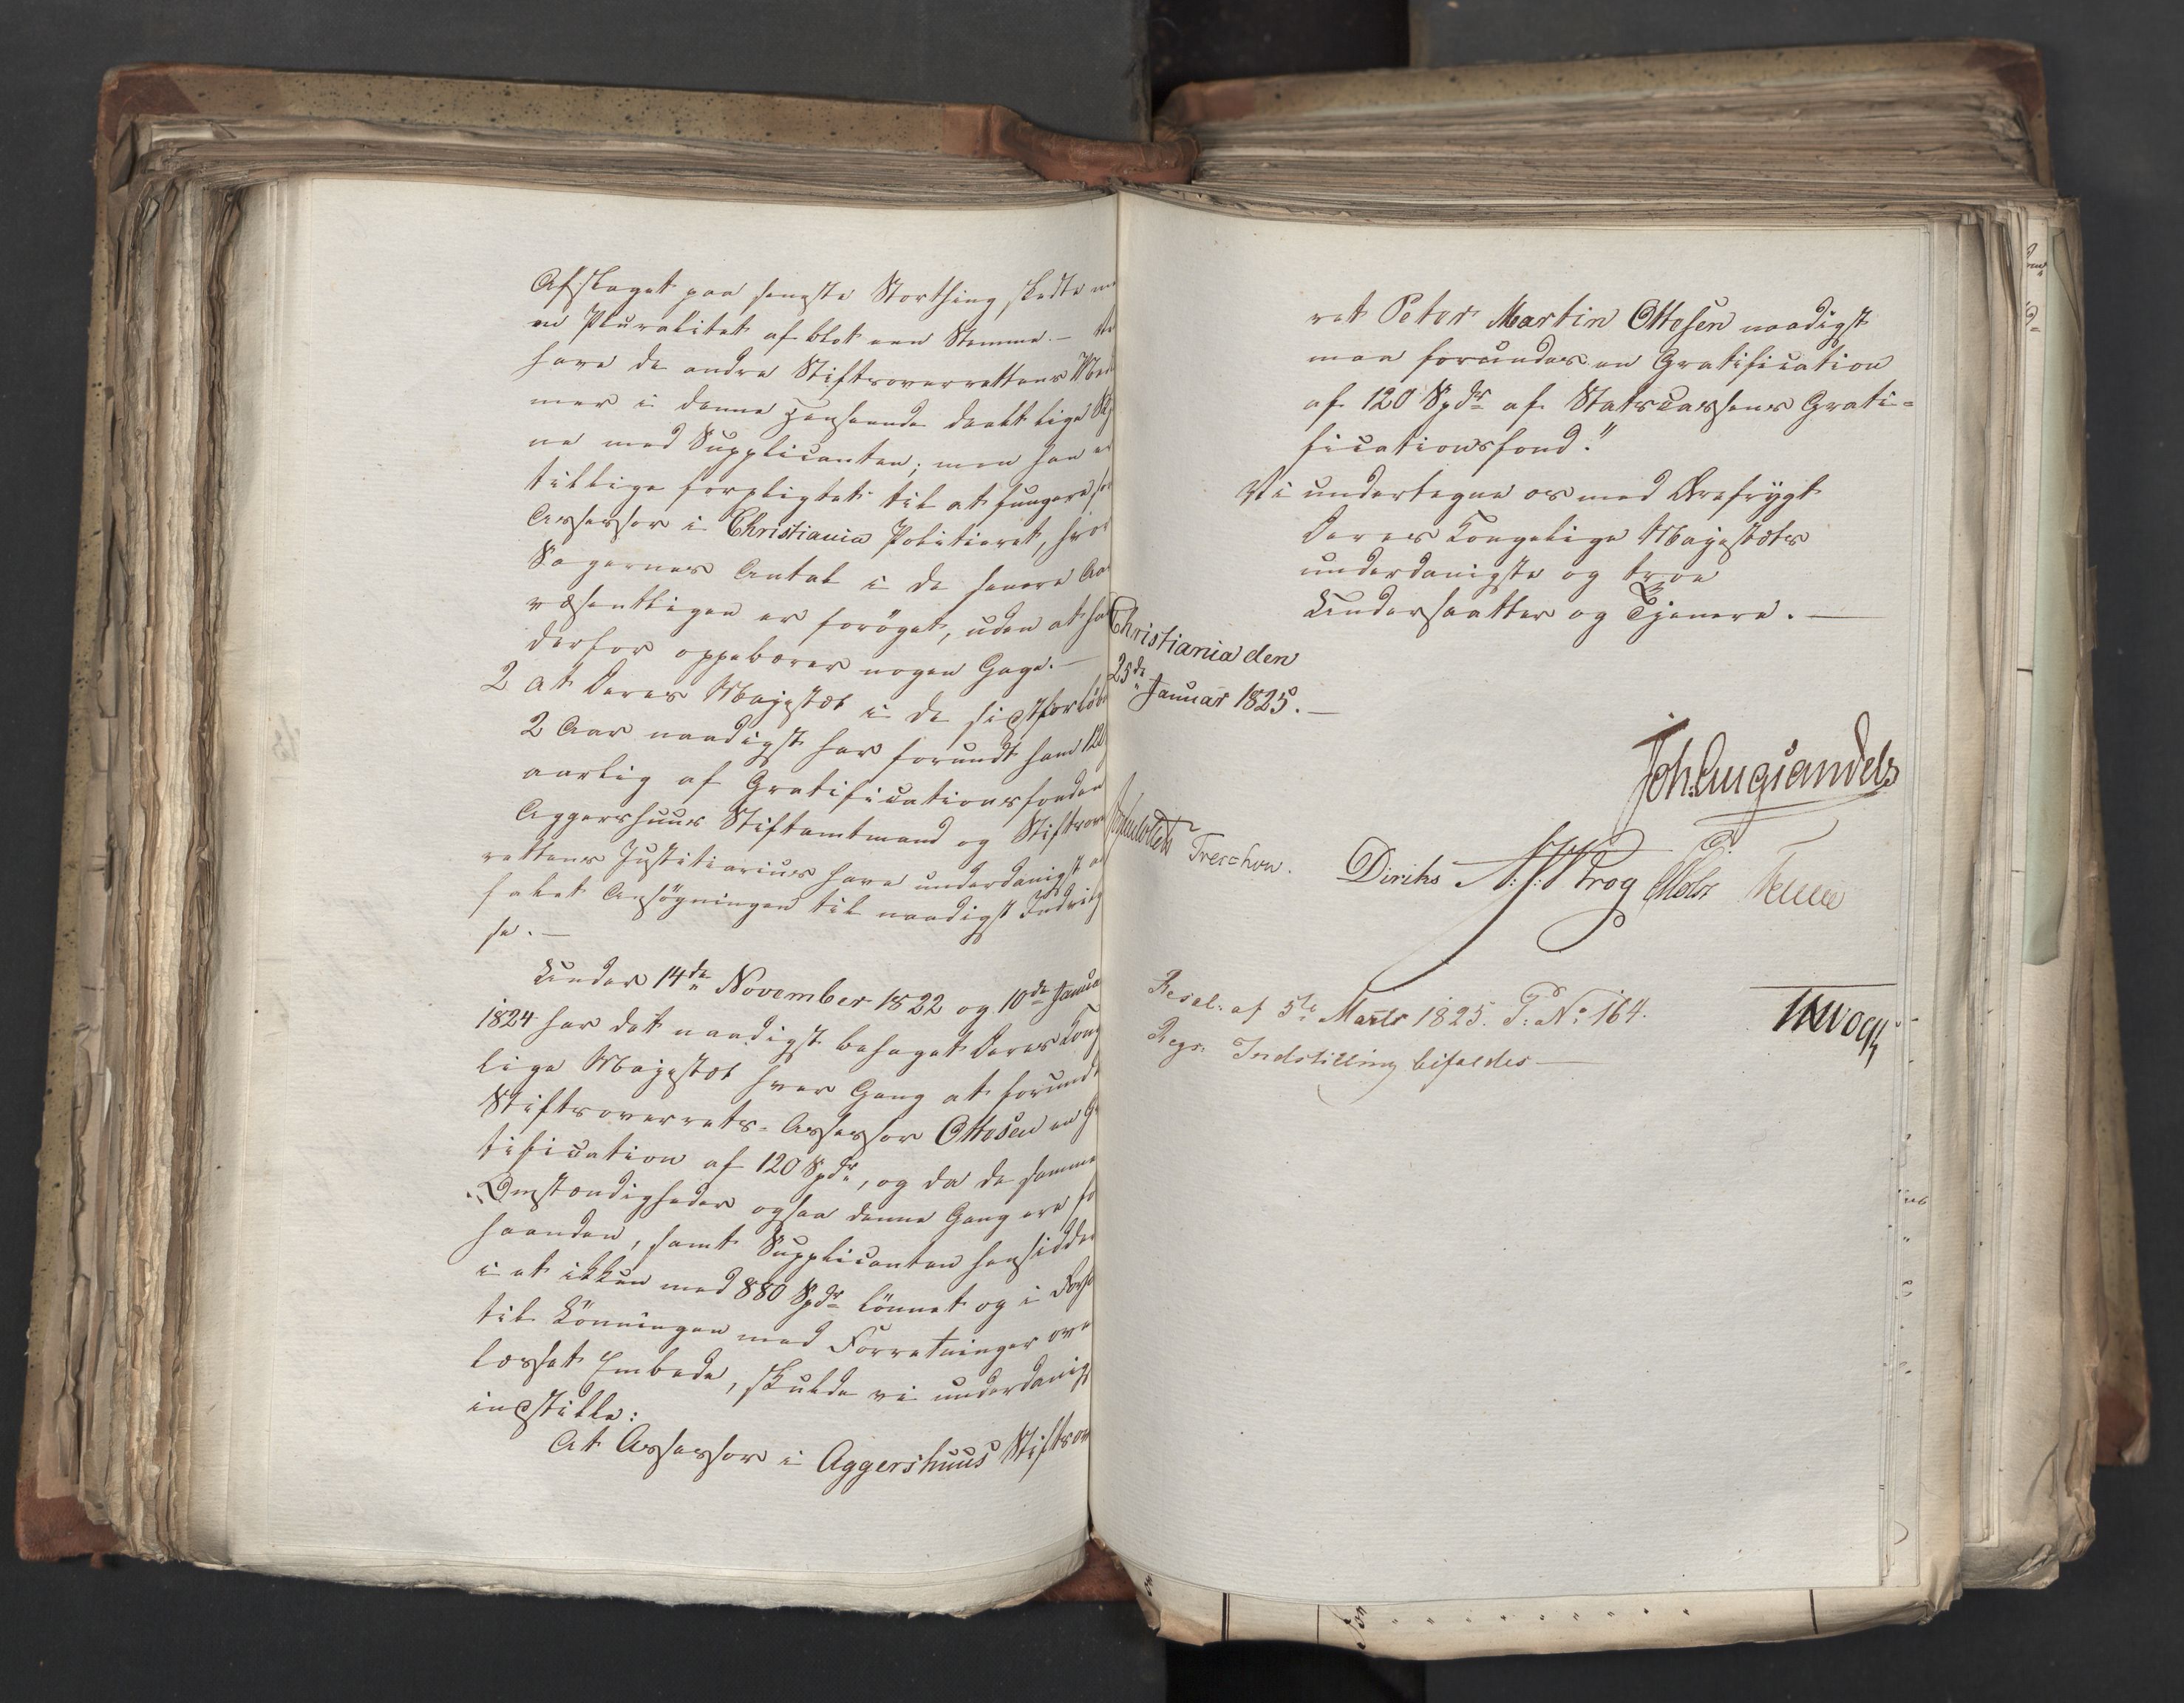 Afslaget paa seneste Storthing, skedte
en Pluralitet af blot een Stemme. –
have de andre Stiftsoverrettens Med
mer i denne Henseende deelt lige
ne med Supplicanten; men han er
tillige forpligtet til at fungere
Assessor i Christiania Politieret, hvor
Sagernes Antal i de senere Aa
væsentligen er forøget, uden at ha
derfor oppebærer nogen Gage. –
2 At Deres Majestæt i de sidstforløb
2 Aar naadigst har forundt ham 120
aarlig af Gratificationsfonden
Aggershuus Stiftamtmand og Stiftsove
rettens Justitiarius have underdanigst an
falet Ansøgningen til naadigst Indvilg
se. –
Under 14de November 1822 og 10de Janua
1824 har det naadigst behaget Deres Kong
lige Majestæt hver Gang at forundt
Stiftsoverrets-Assessor Ottosen en G
tification af 120 Spdr, og da de samme
Omstændigheder ogsaa denne Gang ere fo
haanden, samt Supplicanten hensidder
i et ikkun med 880 Spdr lønnet og i Forho
til Lønningen med Forretninger ove
læsset Embede, skulde vi underdanigs
indstille:
At Assessor i Aggershuus Stiftsov
ret Peter Martin Ottosen naadigst
maa forundes en Gratification
af 120 Spdr af Statscassens Grati-
ficationsfond."
Vi undertegne os med Ærefrygt
Deres Kongelige Majestæts
underdanigste og troe
Undersaatter og Tjenere. –
Christiania den
25de Januar 1825. –
Joh. Aug. Sandels
Treschow. Diriks Krog
Resol: af 5te Marts 1825. P: No 164.
Regs. Indstilling bifaldes –